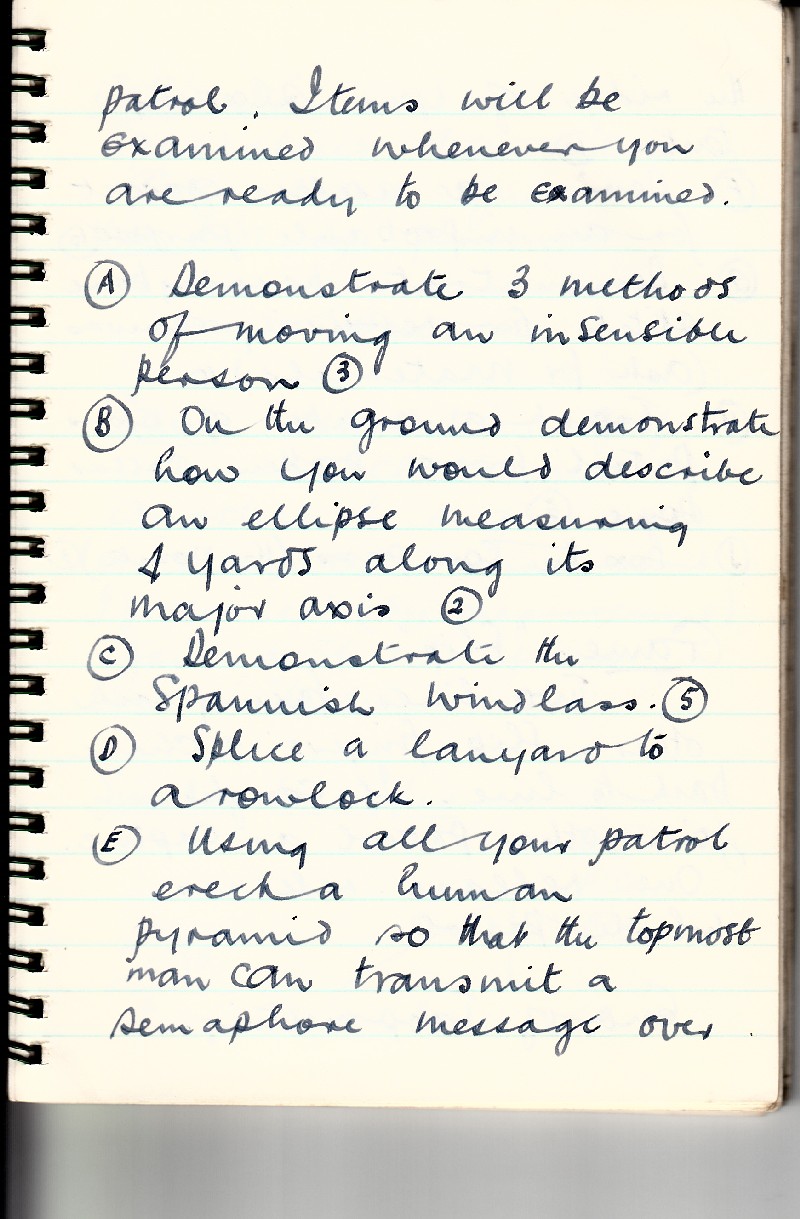 patrol. Items will be
examined whenever you
are ready to be examined.
Ⓐ Demonstrate 3 methods
of moving an insensible
person ③
Ⓑ On the ground demonstrate
how you would describe
an ellipse measuring
4 yards along its
major axis ②
Ⓒ Demonstrate the
Spannish windlass. ⑤
Ⓓ Splice a lanyard to
a rowlock.
Ⓔ Using all your patrol
erect a human
pyramid so that the topmost
man can transmit a
semaphore message over